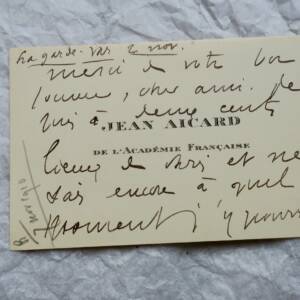 La garde. Var 2 nov.
merci de votre bon
souvenir, cher ami. Je
suis à deux cents
JEAN AICARD
DE L'ACADÉMIE FRANÇAISE
lieues de Paris et ne
sais encore à quel
moment j'y pourr